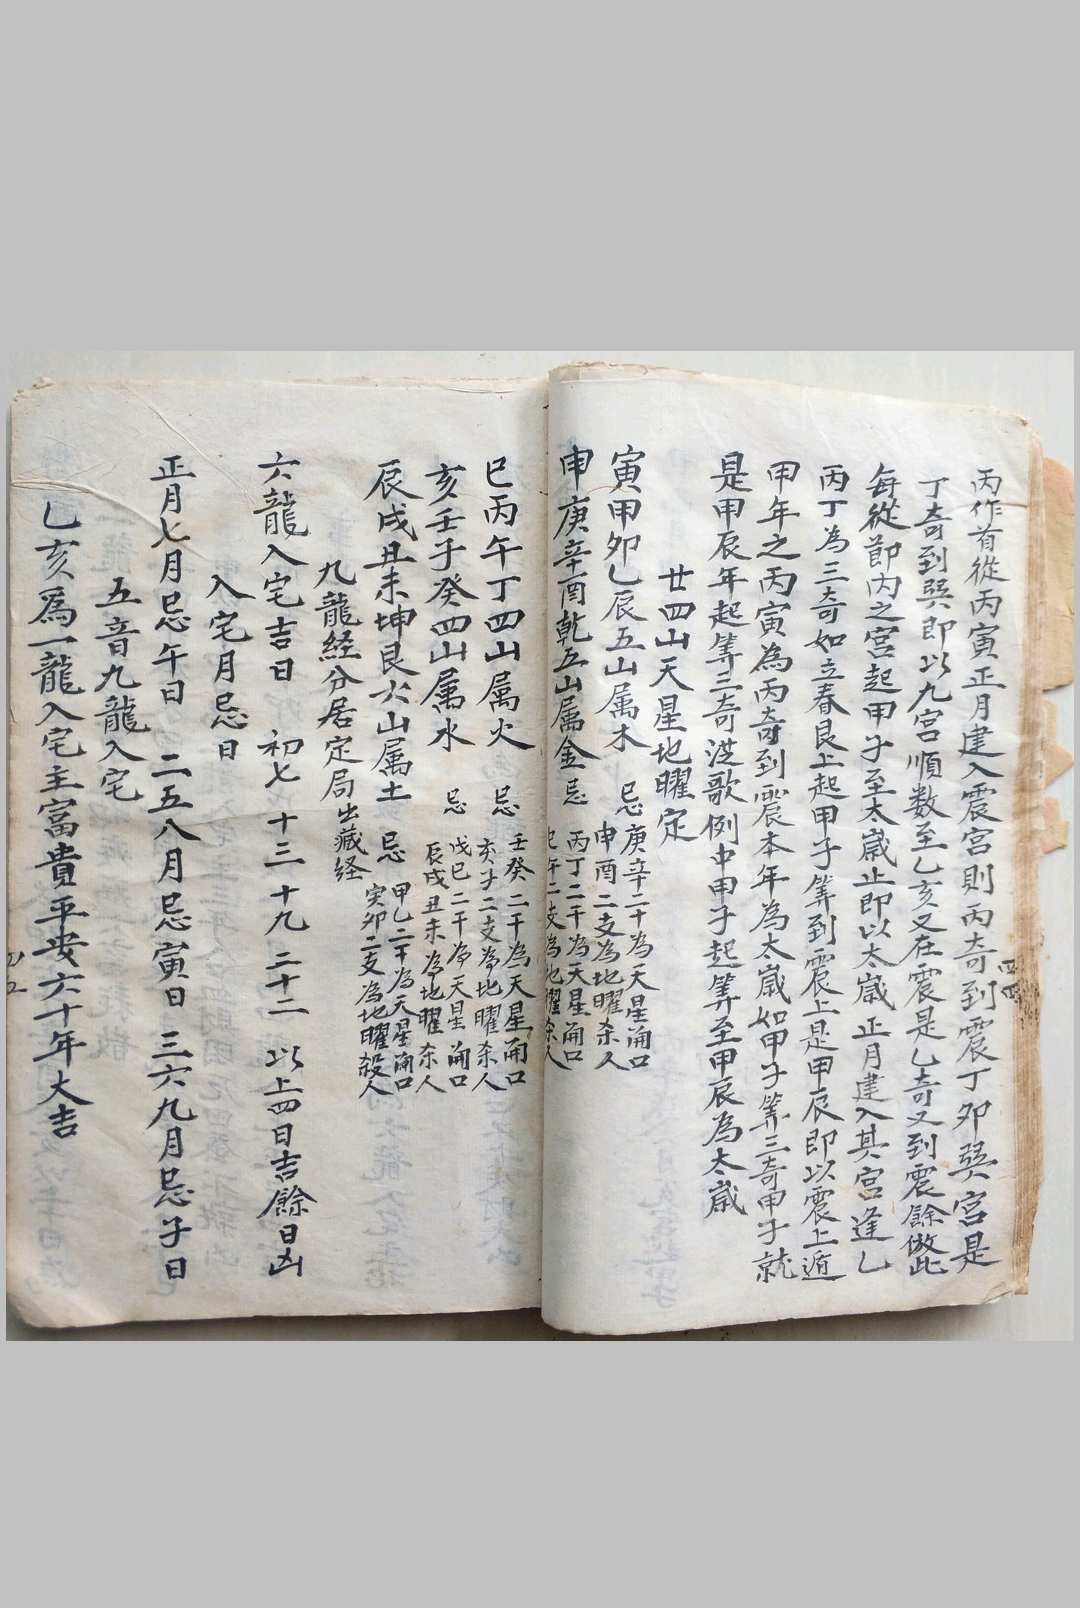 丙作首從丙寅正月建入震宮則丙奇到震丁卯巽宮是
丁奇到巽即以九宮順数至乙亥又在震是乙奇又到震餘倣此
每從節内之宮起甲子至太歲止即以太歲正月建入其宮逢乙
丙丁為三奇如立春艮上起甲子筭到震上是甲辰即以震上遁
甲年之丙寅為丙奇到震本年為太歲如甲子筭三奇甲子就
是甲辰年起筭三奇浤歌例中甲子起筭至甲辰為太歲
廿四山天星地曜定
寅甲卯乙辰五山属木 忌 庚辛二干為天星開口
申酉二支為地曜杀人
申庚辛酉乾五山属金 忌 丙丁二干為天星開口
巳午二支為地曜杀人
巳丙午丁四山属火 忌 壬癸二干為天星開口
亥子二支為地曜杀人
亥壬子癸四山属水 忌 戊己二干為天星開口
辰戌丑未為地曜杀人
辰戌丑未坤艮六山属土 忌 甲乙二干為天星開口
寅卯二支為地曜殺人
九龍経分居定局出藏経
六龍入宅吉日 初七 十三 十九 二十二 以上四日吉餘日凶
入宅月忌日
正月七月忌午日 二五八月忌寅日 三六九月忌子日
五音九龍入宅
乙亥爲一龍入宅主富貴平安六十年大吉
四四